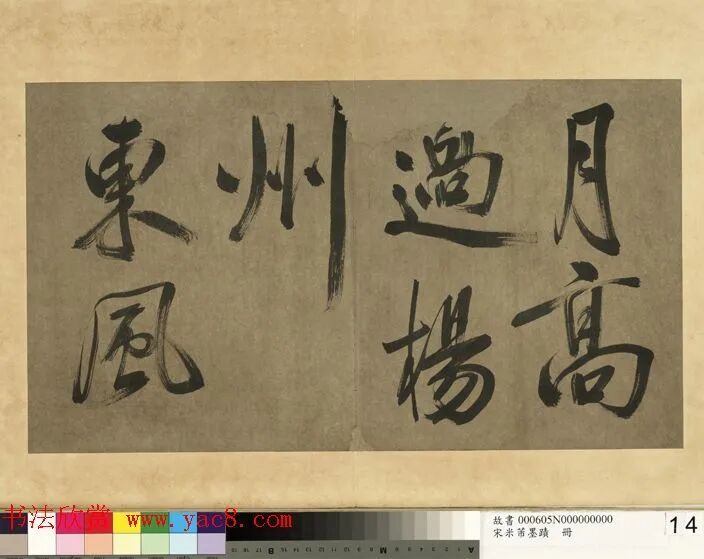 月高
過楊
州
東風
书法欣赏 www.yac8.com
故書 000605N000000000
宋米芾墨蹟 冊
14